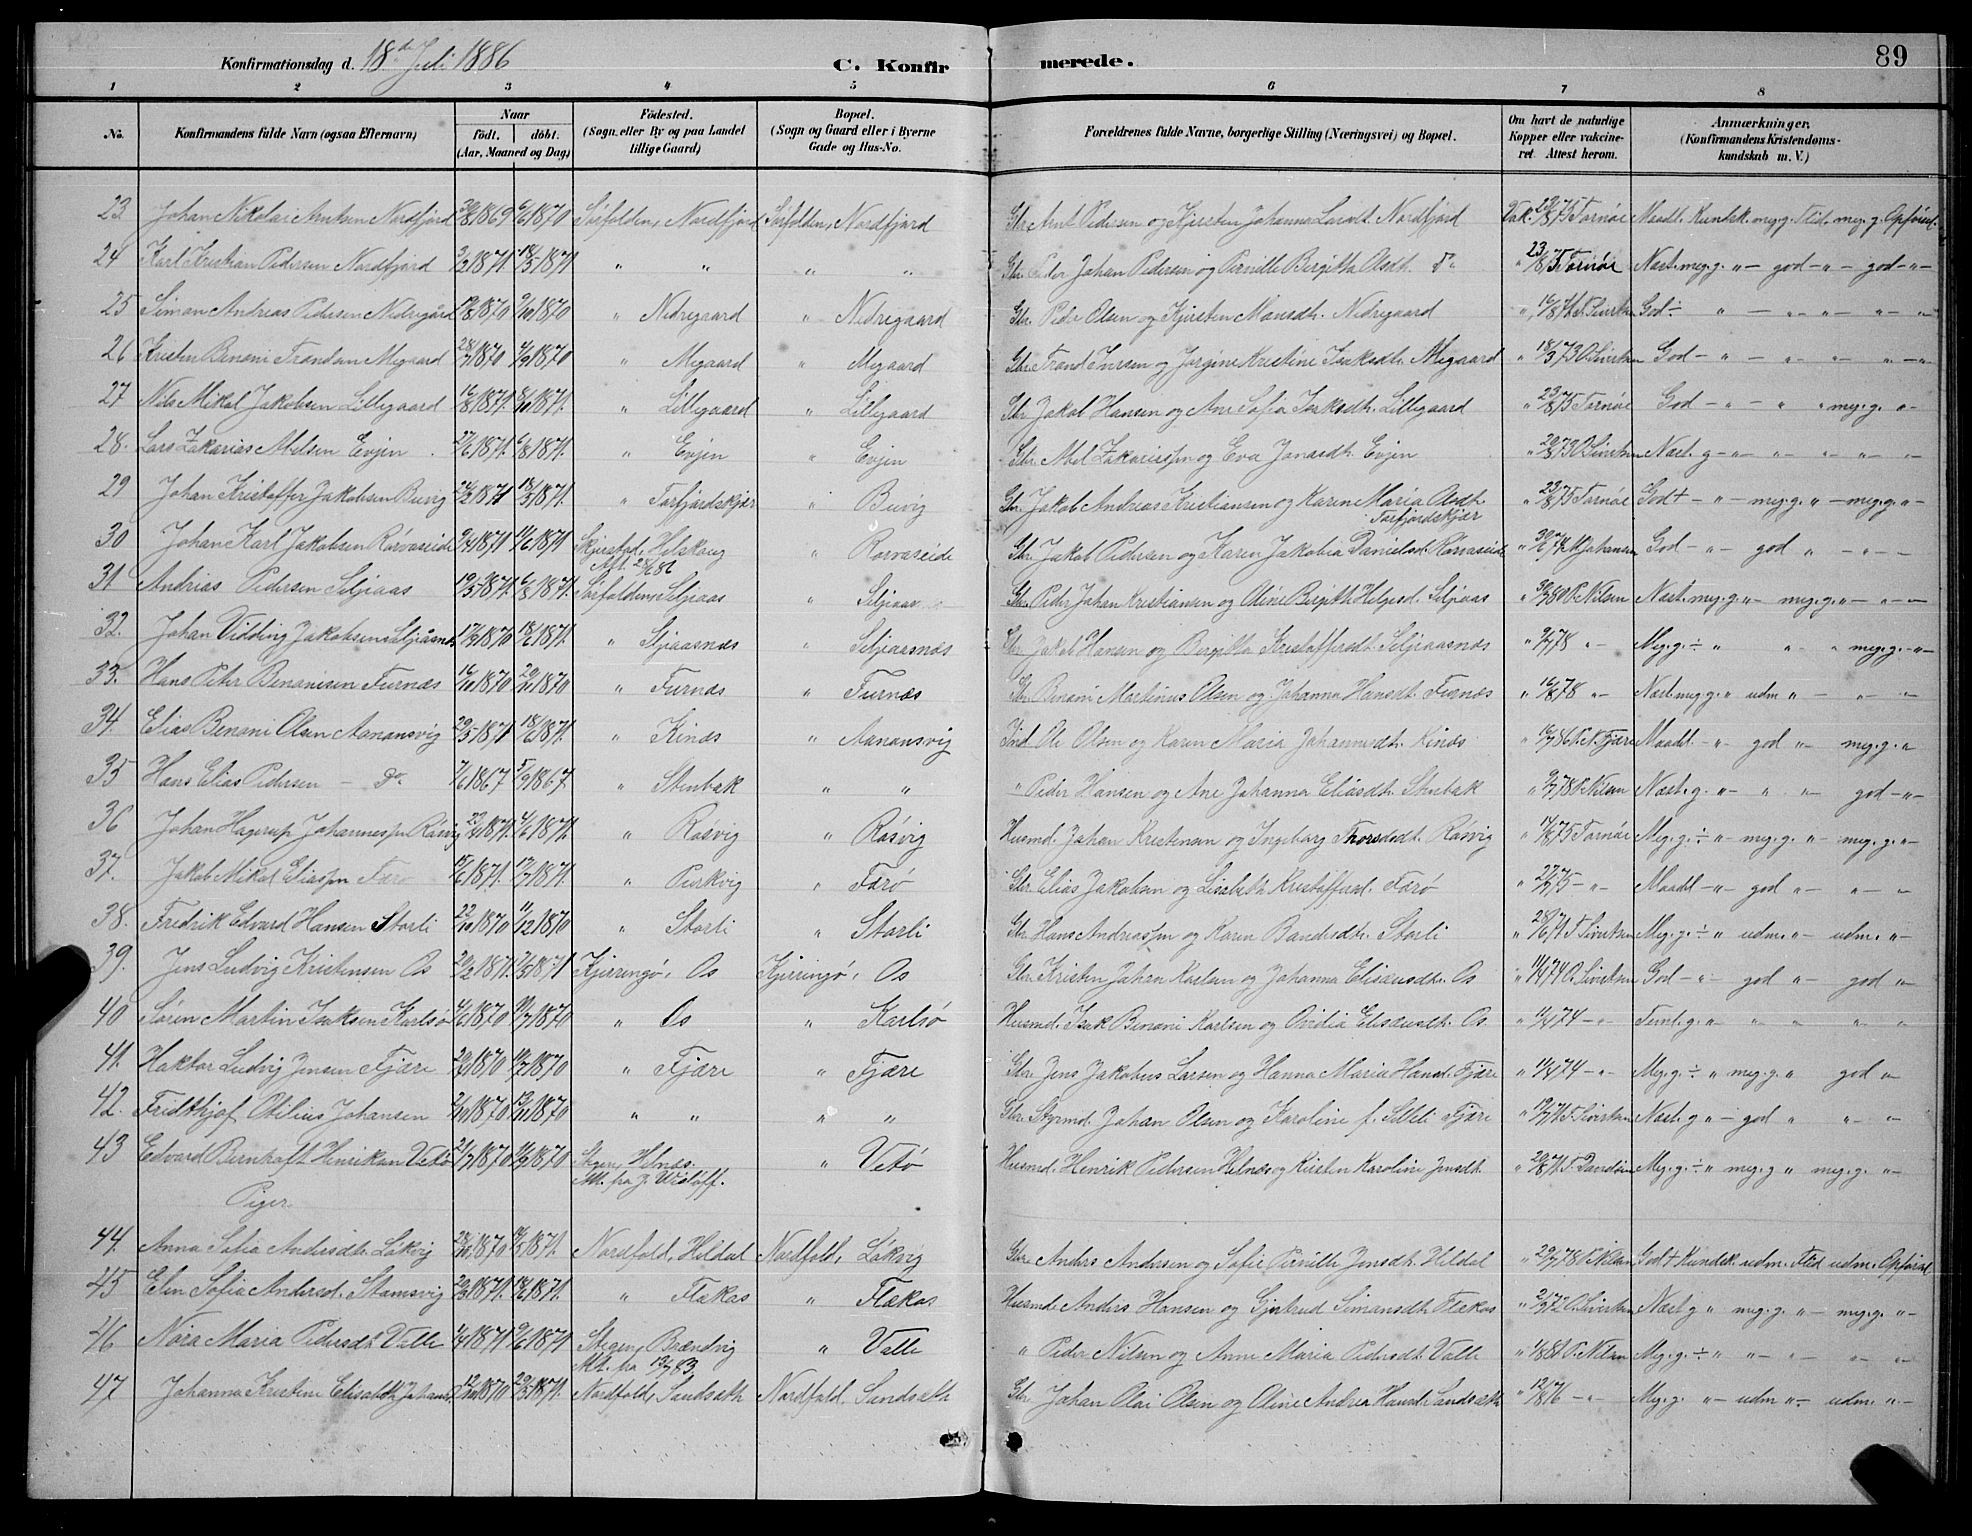 Konfirmationsdag d. 18de Juli 1886 C. Konfirmerede. 89
1 2 3 4 5 6 7 8
No. Konfirmandens fulde Navn (ogsaa Efternavn) Naar födt. döbt. (Aar, Maaned og Dag) Födested. (Sogn, eller By og paa Landet tillige Gaard) Bopæl. (Sogn og Gaard eller i Byerne Gade og Hus-No. Forældrenes fulde Navne, borgerlige Stilling (Næringsvei) og Bopæl. Om havt de naturlige Kopper eller vakcineret. Attest herom. Anmærkninger, (Konfirmandens Kristendomskundskab m. V.)
23. Johan Nikolai Arntsen Nordfjord 30/8 1869 6/6 1870 Sörfolden, Nordfjord Sörfolden, Nordfjord Gbr. Arnt Pedersen og Kjersten Johanna Larsdt. Nordfjord Vak. 23/8 75 Tornöe Maadl. Kundsk. meg. g. Flid meg. g. Opförsel
24 Karl Kristian Pedersen Nordfjord 3/2 1871. 18/5 1871 " " " " Gbr. Peder Johan Pedersen og Pernille Birgitta Olsdt. Do " 23/8 75 Tornöe Næst. meg. g. " – god – " – god – " –
25 Simon Andreas Pedersen Nedregård 19/8 1870 9/10 1870 " Nedregaard " Nedregaard Gbr. Peder Olsen og Kjersten Monsdt. Nedregaard " 16/8 71 Sivertsen God ÷ " – " – " – " – "
26 Krister Benoni Trondsen Megaard 28/7 1870 4/9 1870 " Megaard " Megaard Gbr. Trond Iversen og Jörgine Kristine Isaksdt. Megaard " 18/3 73 O. Sivertsen God – " – " – " " – " –
27 Nils Mikal Jakobsen Lillegaard 16/8 1871. 8/10 1871. " Lillegaard " Lillegaard Gbr. Jakob Hansen og Ane Sofia Isaksdt. Lillegaard " 23/8 75 Tornöe God – " – " " meg. g. " –
28. Lars Zakarias Abelsen Evjen 27/6 1871. 6/8 1871. " Evjen " Evjen Gbr. Abel Zakariassen og Eva Jonasdt. Evjen " 20/8 73 O. Sivertsen Næst. g – " – " " " – "
29 Johan Kristoffer Jakobsen Buvig 24/2 1871 18/5 1871. " Torfjordskjær " Buvig Gbr. Jakob Andreas Kristiansen og Karen Maria Olsdt. Torfjordskjær " 23/8 75 Tornöe God + – " – meg. g. " – meg. g " –
30 Johan Karl Jakobsen Rörvaseide 9/4 1871 11/6 1871 Skjerstad, Helskoug Att. 28/6 86 " Rorvaseide Gbr. Jakob Pedersen og Karen Jakobia Danielsd. Rörvaseide " 30/6 74 M Johansen God – " – god " – " –
31 Andrias Pedersen Seljaas 19/5 1871. 6/8 1871. Sörfolden, Seljaas " Seljaas Gbr. Peder Johan Kristiansen og Oline Birgitta Helgesd. Seljaas " 30/9 80 P. Nilsen Næst. meg. g " – meg. g. " – " –
32. Johan Vidding Jakobsen Seljåsnes 17/9 1870 18/6 1871. " Seljaasnæs " Seljaasnæs Gbr. Jakob Hansen og Birgitta Kristoffersdt. Seljaasnæs " 9/7 78 " – Meg. g. ÷ " " " meg. g. – " –
33. Hans Peter Benonisen Furnæs 16/10 1870 20/11 1870 " Furnæs " Furnæs Gbr. Benoni Martinus Olsen og Johanna Hansdt. Furnæs " 16/8 78 " – Næst. meg. g. " udm " – " – "
34. Elias Benoni Olsen Aanansvig 29/5 1871 18/6 1871. " Kinæs " Aanansvig Ind. Ole Olsen og Karen Maria Johannesdt. Kinæs " 16/7 86 P. N. Fjære Maadl. – " – god " – meg. g. "
35 Hans Elias Pedersen – Do 7/6 1867 5/9 1867. " Stenbak " " " Peder Hansen og Ane Johanna Eliasdt. Stenbak " 9/7 78 P. Nilsen Næst. g " – " " god – " –
36 Johan Hagerup Johannessen Rösvig 23/4 1871. 4/6 1871. " Rösvig " Rösvig Husmd. Johan Kristensen og Ingeborg Thorsdt. Rösvig " 17/8 75 Tornöe Meg. g. ÷ " – meg. g. " – meg. g. " –
37. Jakob Mikal Eliassen Færö 15/6 1871. 17/7 1871. " Purkvig " Færö Gbr. Elias Jakobsen og Lisabeth Kristoffersd. Færö " 27/9 75 – " – Maadl – " – god " – " – "
38. Fredrik Edvard Hansen Storli 22/10 1870 11/12 1870 " Storli " Storli Gbr. Hans Andreassen og Karen Bendesdt. Storli " 28/6 71 T. Sivertsen Meg. g. ÷ " udm. " – udm. " –
39. Jens Ludvig Kristensen Os 20/2 1871. 7/5 1871 Kjerringö, Os Kjerringö, Os Gbr. Kristen Johan Karlsen og Johanna Elisæusdt. Os " 11/4 74 O. Sivertsen God – " – god " – god " –
40 Sören Martin Isaksen Karlsö 4/6 1870 10/7 1870 " Os " Karlsö Husmd. Isak Benoni Karlsen og Ovidia Elisæusdt. Os. " 11/4 74 – " – Teml. g. " – " " " – "
41. Haktor Ludvig Jensen Fjære 29/1 1870 10/7 1870 " Fjære " Fjære Gbr. Jens Jakobus Larsen og Hanna Maria Hansd. Fjære " 11/4 74 – " – Meg. g. ÷ " meg. g. " god "
42. Fridthjof Otilius Johansen 2/10 1870 13/11 1870 " " " " Gbr. Styrmd. Johan Olsen og Karoline f. Fjære " 19/7 71 T. Sivertsen Næst. g " – god " " "
43 Edvard Bernhoft Henriksen Vetö 21/7 1870 11/9 1870 Stegen, Helnæs Att. fra J. Wisloff. " Vetö Husmd. Henrik Pedersen Helnæs og Kirsten Karoline Jensdt. " 20/8 71 T. Danelsen Meg. g. ÷ " meg. g " meg. g. " –
Piger
44. Anna Sofia Andersdt. Låkvig 28/10 1870 14/5 1871. Nordfold, Hildal Nordfold, Låkvig Gbr. Anders Andersen og Sofie Pernille Jensdt. Hildal " 29/7 78 P. Nilsen God + Kundsk. udm. Flid udm. Opförsel
45. Elen Sofia Andersd. Stamsvig 20/3 1871. 18/6 1871. " Flakas " Flakas Husmd. Anders Hansen og Gjertrud Simonsdt. Flakas " 2/9 72 O. Sivertsen Næst. g " meg. g. " – meg. g. " –
46 Nora Maria Pedersdt. Valle 1/4 1871 9/6 1871 Stegen, Brændvig Att. fra 19/7 83 " Valle " Peder Nilsen og Anne Maria Pedersdt. Valle " 1/8 81 P. Nilsen Meg. g. ÷ " " – " – " – "
47 Johanna Kristine Elisabeth Johansd. 12/10 1870 29/5 1871. Nordfold, Sandsæth Nordfold, Sandsæth Gbr. Johan Olai Olsen og Oline Andrea Hansdt. Sandsæth " 12/8 76 – " – Meg. g. " – udm " – udm. " –